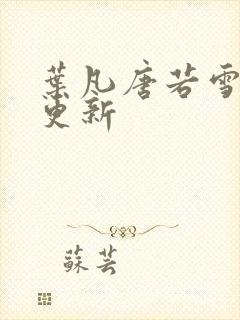 葉凡唐若雪
更新
蘇芸